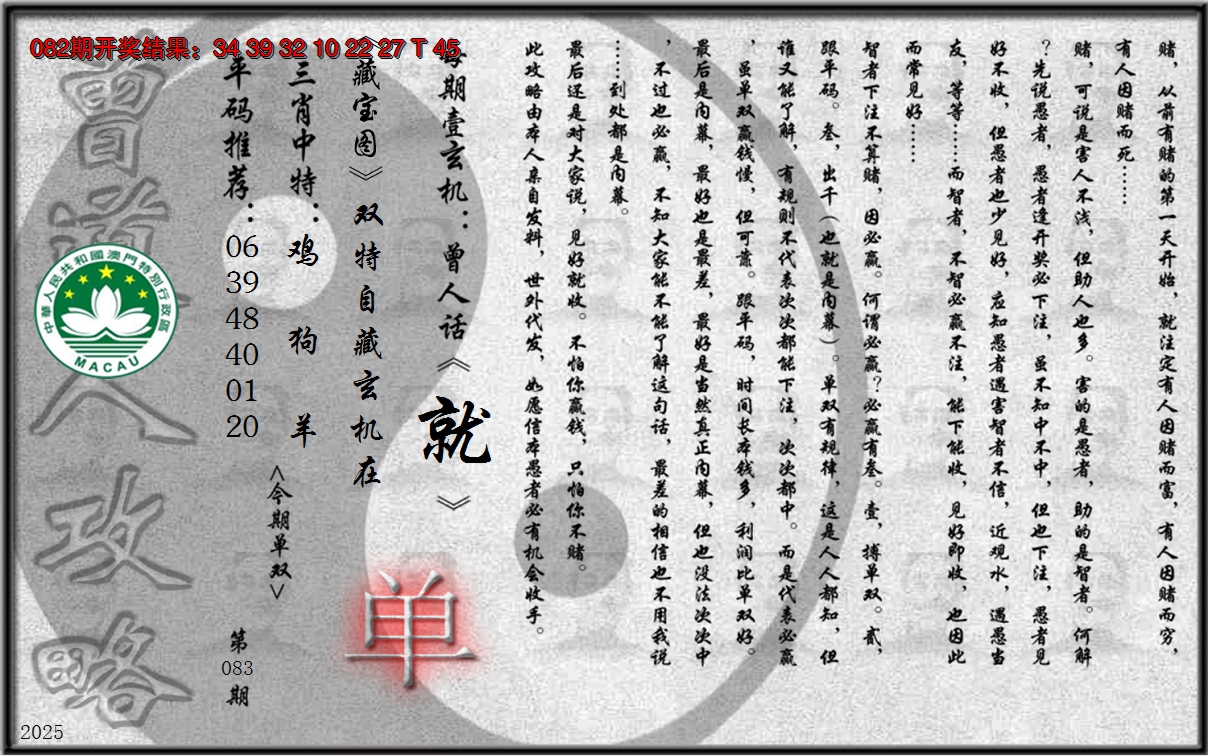 082期开奖结果：34 39 32 10 22 27 T 45
赌，从前有赌的第一天开始，就注定有人因赌而富，有人因赌而穷，
有人因赌而死……
赌，可说是害人不浅，但助人也多。害的是愚者，助的是智者。何解
？先说愚者，愚者逢开奖必下注，虽不知中不中，但也下注，愚者见
好不收，但愚者也少见好，应知愚者遇害智者不信，近观水，遇愚当
友，等等……而智者，不智必赢不注，能下能收，见好即收，也因此
而常见好……
智者下注不算赌，因必赢。何谓必赢？必赢有叁。壹，搏单双。贰，
跟平码。叁，出千（也就是内幕）。单双有规律，这是人人都知，但
谁又能了解，有规则不代表次次都能下注，次次都中。而是代表必赢
，虽单双赢钱慢，但可靠。跟平码，时间长本钱多，利润比单双好。
最后是内幕，最好也是最差，最好是当然真正内幕，但也没法次次中
，不过也必赢，不知大家能不能了解这句话，最差的相信也不用我说
……到处都是内幕。
最后还是对大家说，见好就收。不怕你赢钱，只怕你不赌。
此攻略由本人亲自发料，世外代发，如愿信本愚者必有机会收手。
每期壹玄机：曾人话《就》
《藏宝图》双特自藏玄机在
单
三肖中特：鸡 狗 羊
<今期单双>
平码推荐：06 39 48 40 01 20
第083期
曾道人攻略
中華人民共和國澳門特別行政區
MACAU
2025